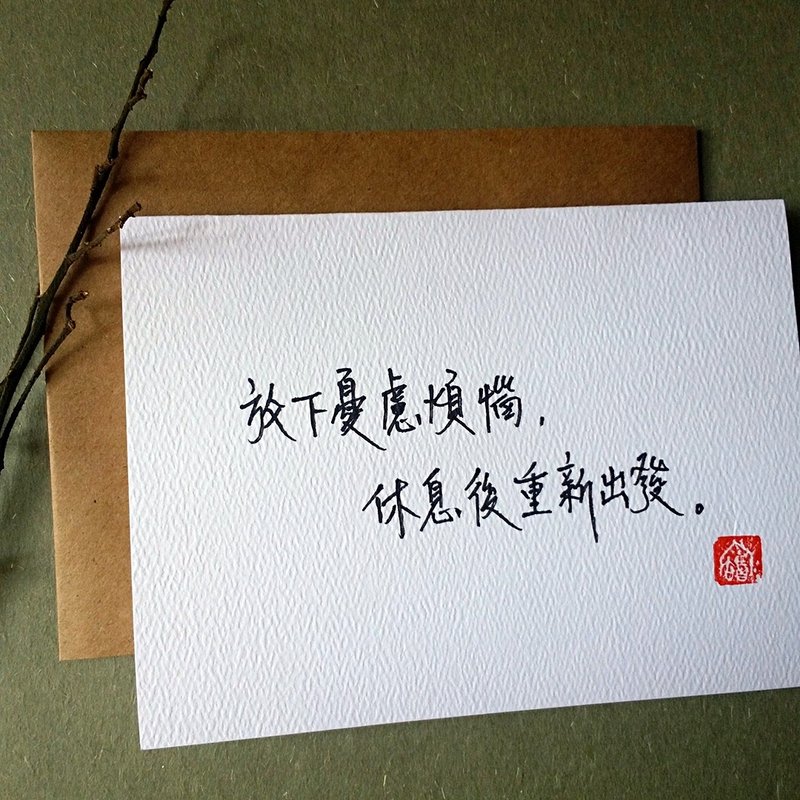 放下憂慮煩惱，
休息後重新出發。